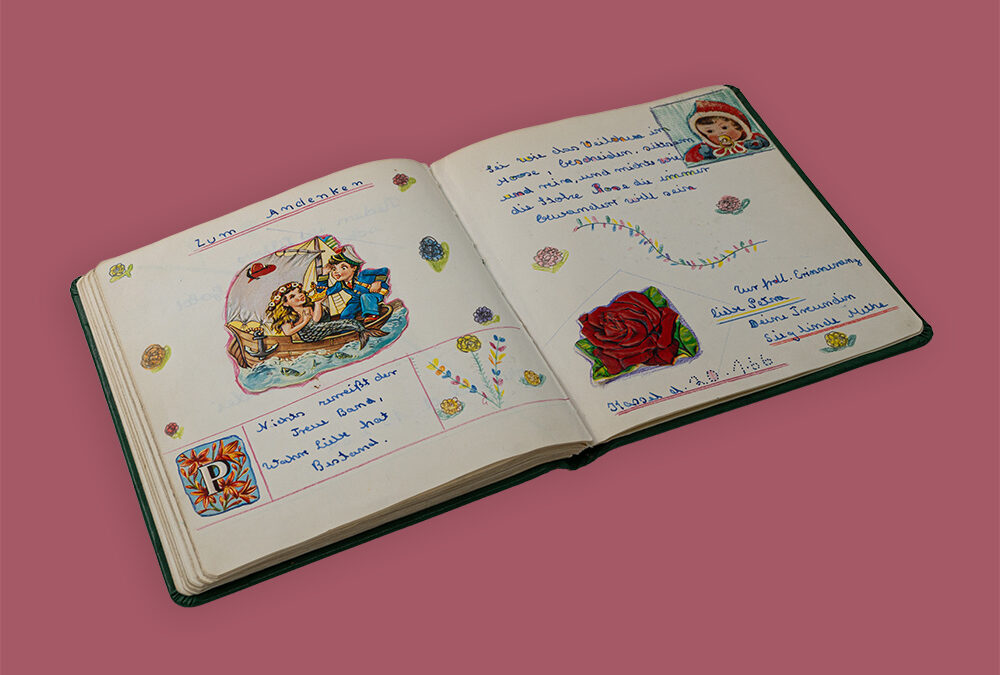 Zum Andenken
Nichts zerreißt der
Treue Band,
Wahre Liebe hat
Bestand.
P
Sei wie das Veilchen im
Moose, bescheiden, sittsam
und rein, und nicht wie
die stolze Rose die immer
bewundert will sein
Zur frdl. Erinnerung
liebe Petra
Deine Freundin
Sieglinde
Kassel d.